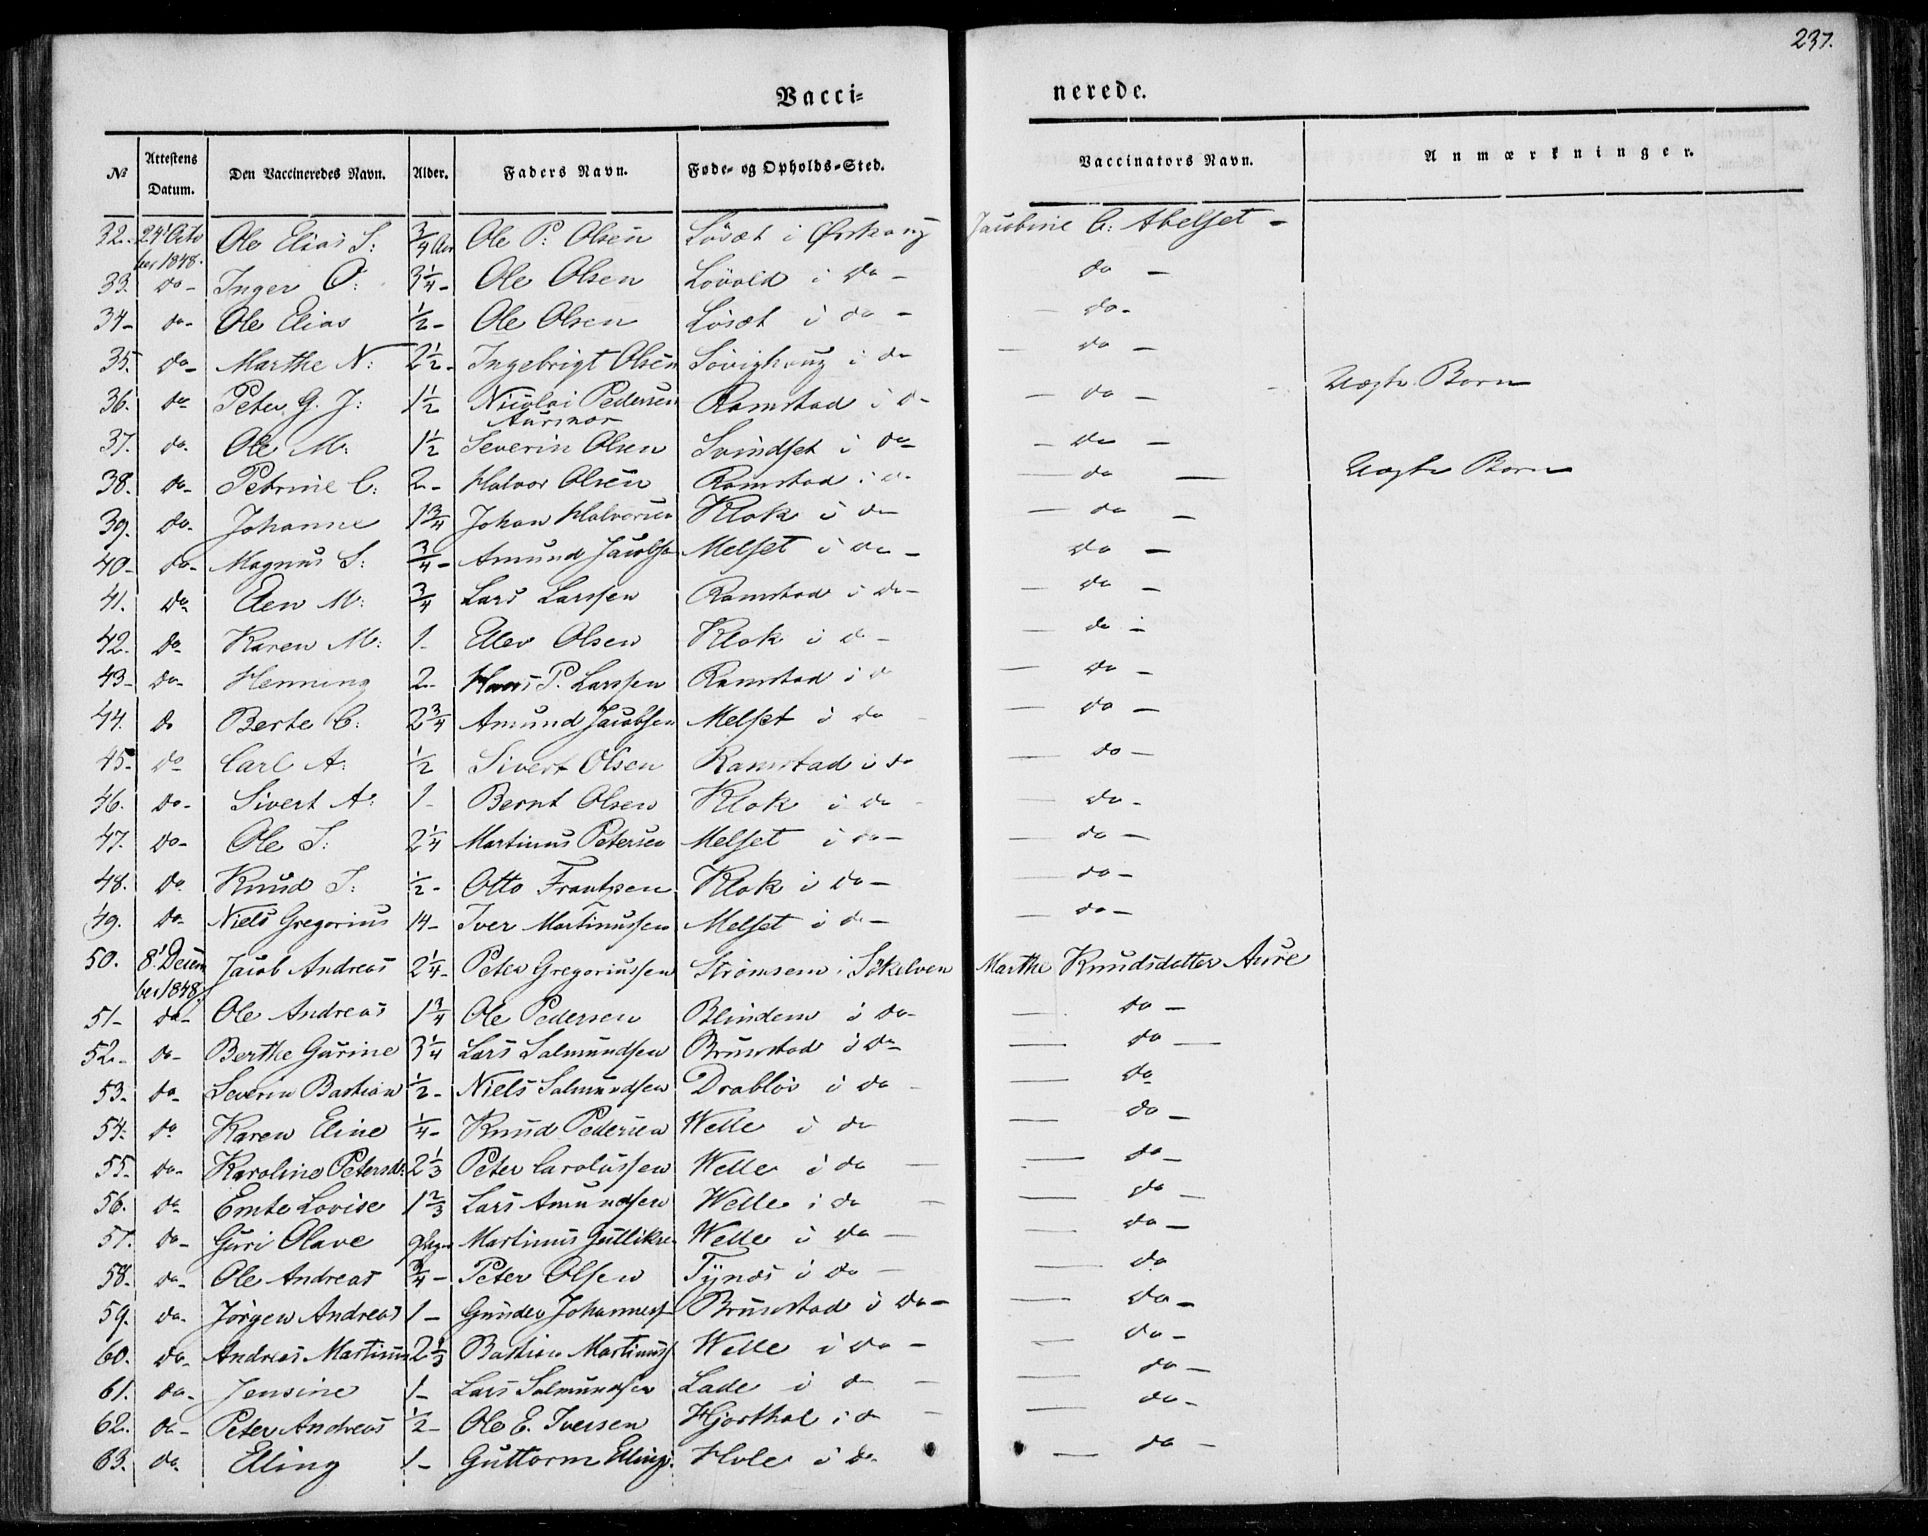 237.
Vacci-
nerede.
No Attestens Datum. Den Vaccineredes Navn. Alder. Faders Navn. Føde- og Opholds-Sted. Vaccinators Navn. Anmærkninger.
32. 24' Octo ber 1848. Ole Elias S: 3/4 Ole P: Olsen Løsæt i Ørskoug C: Abelset -
33. do- Inger O: 3 1/4 - Ole Olsen Løvold i do - do -
34- do- Ole Elias 1/2 - Ole Olsen Løsæt i do - - do-
35. do- Marthe N: 2 1/2 - Ingebrigt Olsen i do - do -
36. do Peter G. J: 1 1/2 Nicolai Pedersen Aursnor Ramstad i do - do - Børn
37. do- Ole M: 1 1/2 Severin Olsen Svindset i do - do -
38. do- Petrine C: 2- Halvor Olsen Ramstad i do - do - Børn
39. do- Johanne 1 3/4 Johan Halvorsen Klok i do - do -
40- do- Magnus S: 3/4 - Amund Jacobsen Melset i do - do -
41. do Elen M: 3/4 Lars Larssen Ramstad i do- - do -
42. do Karen M: 1- Ellev Olsen Klok i do - - do -
43- do- Henning 2- Hans P. Larssen Ramstad i do - do -
44. do Berte C: 2 3/4 Amund Jacobsen Melset i do - do -
45- do Carl A: 1/2 Sivert Olsen Ramstad i do - do -
46. do- Sivert A: 1- Bernt Olsen Klok i do - do-
47. do- Ole S: 2 1/4 Martinus Petersen Melset i do - - do -
48. do Knud S: 1/2 - Otto Frantzen Klok i do - - do -
49. do- Niels Gregorius 14- Iver Martinussen Melset i do - - do -
50. 8' Decem ber 1848. Jacob Andreas 2 1/4 - Peter Gregoriussen Strømsem i Søkelven Marthe Knudsdatter Aure
51- do- Ole Andreas 1 3/4 Ole Pedersen Blindem i do- - do -
52- do- Berthe Gurine 3 1/4 Lars Salmundsen Brunstad i do - do -
53- do- Severin Bastian 1/2 - Niels Salmundsen Drabløs i do - do
54- do Karen Eline 1/4 - Knud Pedersen Welle i do - do -
55- do- Karoline Petersdr. 2 1/3 Peter Carolussen Welle i do - - do -
56. do Emte Lovise 1 2/3 Lars Amundsen Welle i do - - do -
57. do- Guri Olave Martinus Gutliksen Welle i do - - do -
58. do- Ole Andreas 3/4 - Peter Olsen Tynes i do - - do
59. do- Jørgen Andreas 1 - Gunder Johanness Brunstad i do - - do -
60. do- Andreas Martinus 2 1/3 Bastian Martinuss Welle i do - - do -
61. do- Jensine 1- Lars Salmundsen Lade i do - - do -
62. do - Peter Andreas 1/2 - Ole E. Iversen Hjorthol i do - - do -
63. do- Elling 1- Guttorm Ellings. Hole i do - do -